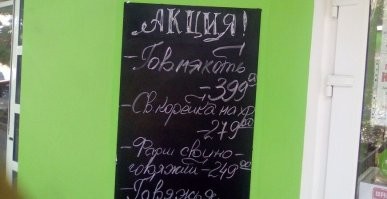 АКЦИЯ!
-Гов мякоть
-399 00
-Св корейка на хр
-279 00
-Фарш свино-
говяжий-249 00
-Говяжья